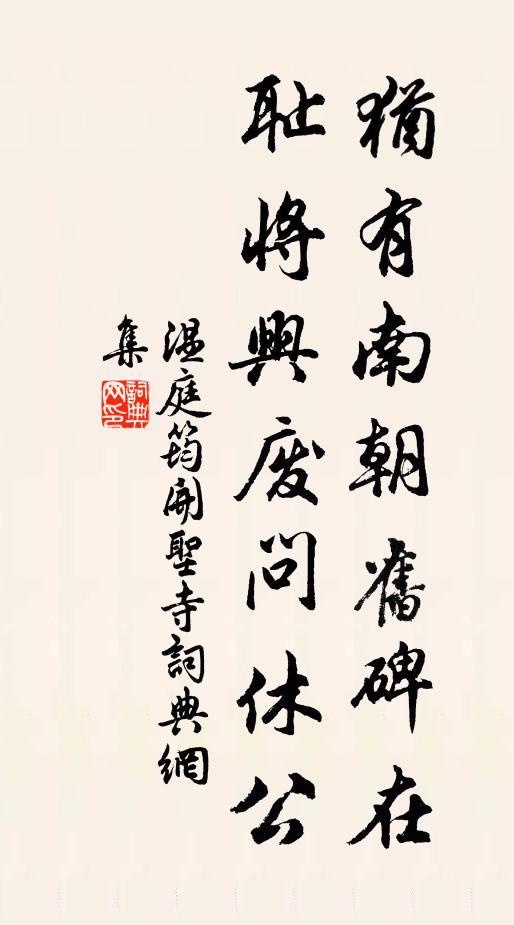 猶有南朝舊碑在
耻將興廢問休公
温庭筠開聖寺詞典網
集
詞典
网印